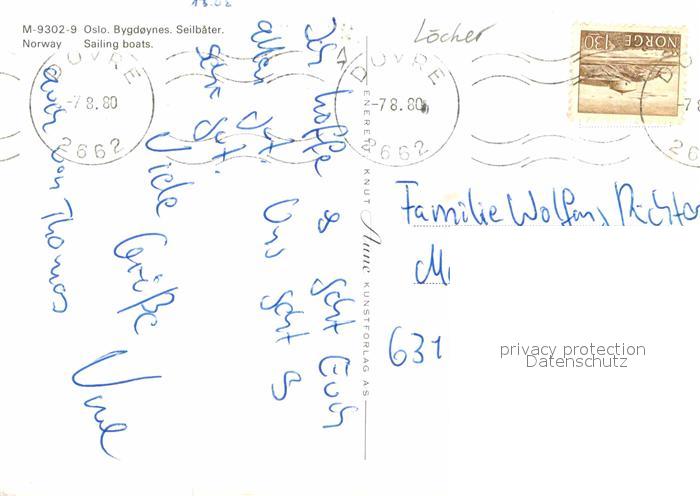 13.02
M-9302-9 Oslo. Bygdøynes. Seilbåter.
Norway Sailing boats.
Löcher
NORGE 130
DOVRE
-7 8. 80
2662
DOVRE
-7 8. 80
2662
D
2 6
ENERERETT KNUT Aune KUNSTFORLAG AS
Ich hoffe es geht Euch
allen gut. Uns geht es
sehr gut.
Viele Grüße
Uwe
auch von Thomas
Familie Wolfgang Richter
M
631
privacy protection
Datenschutz